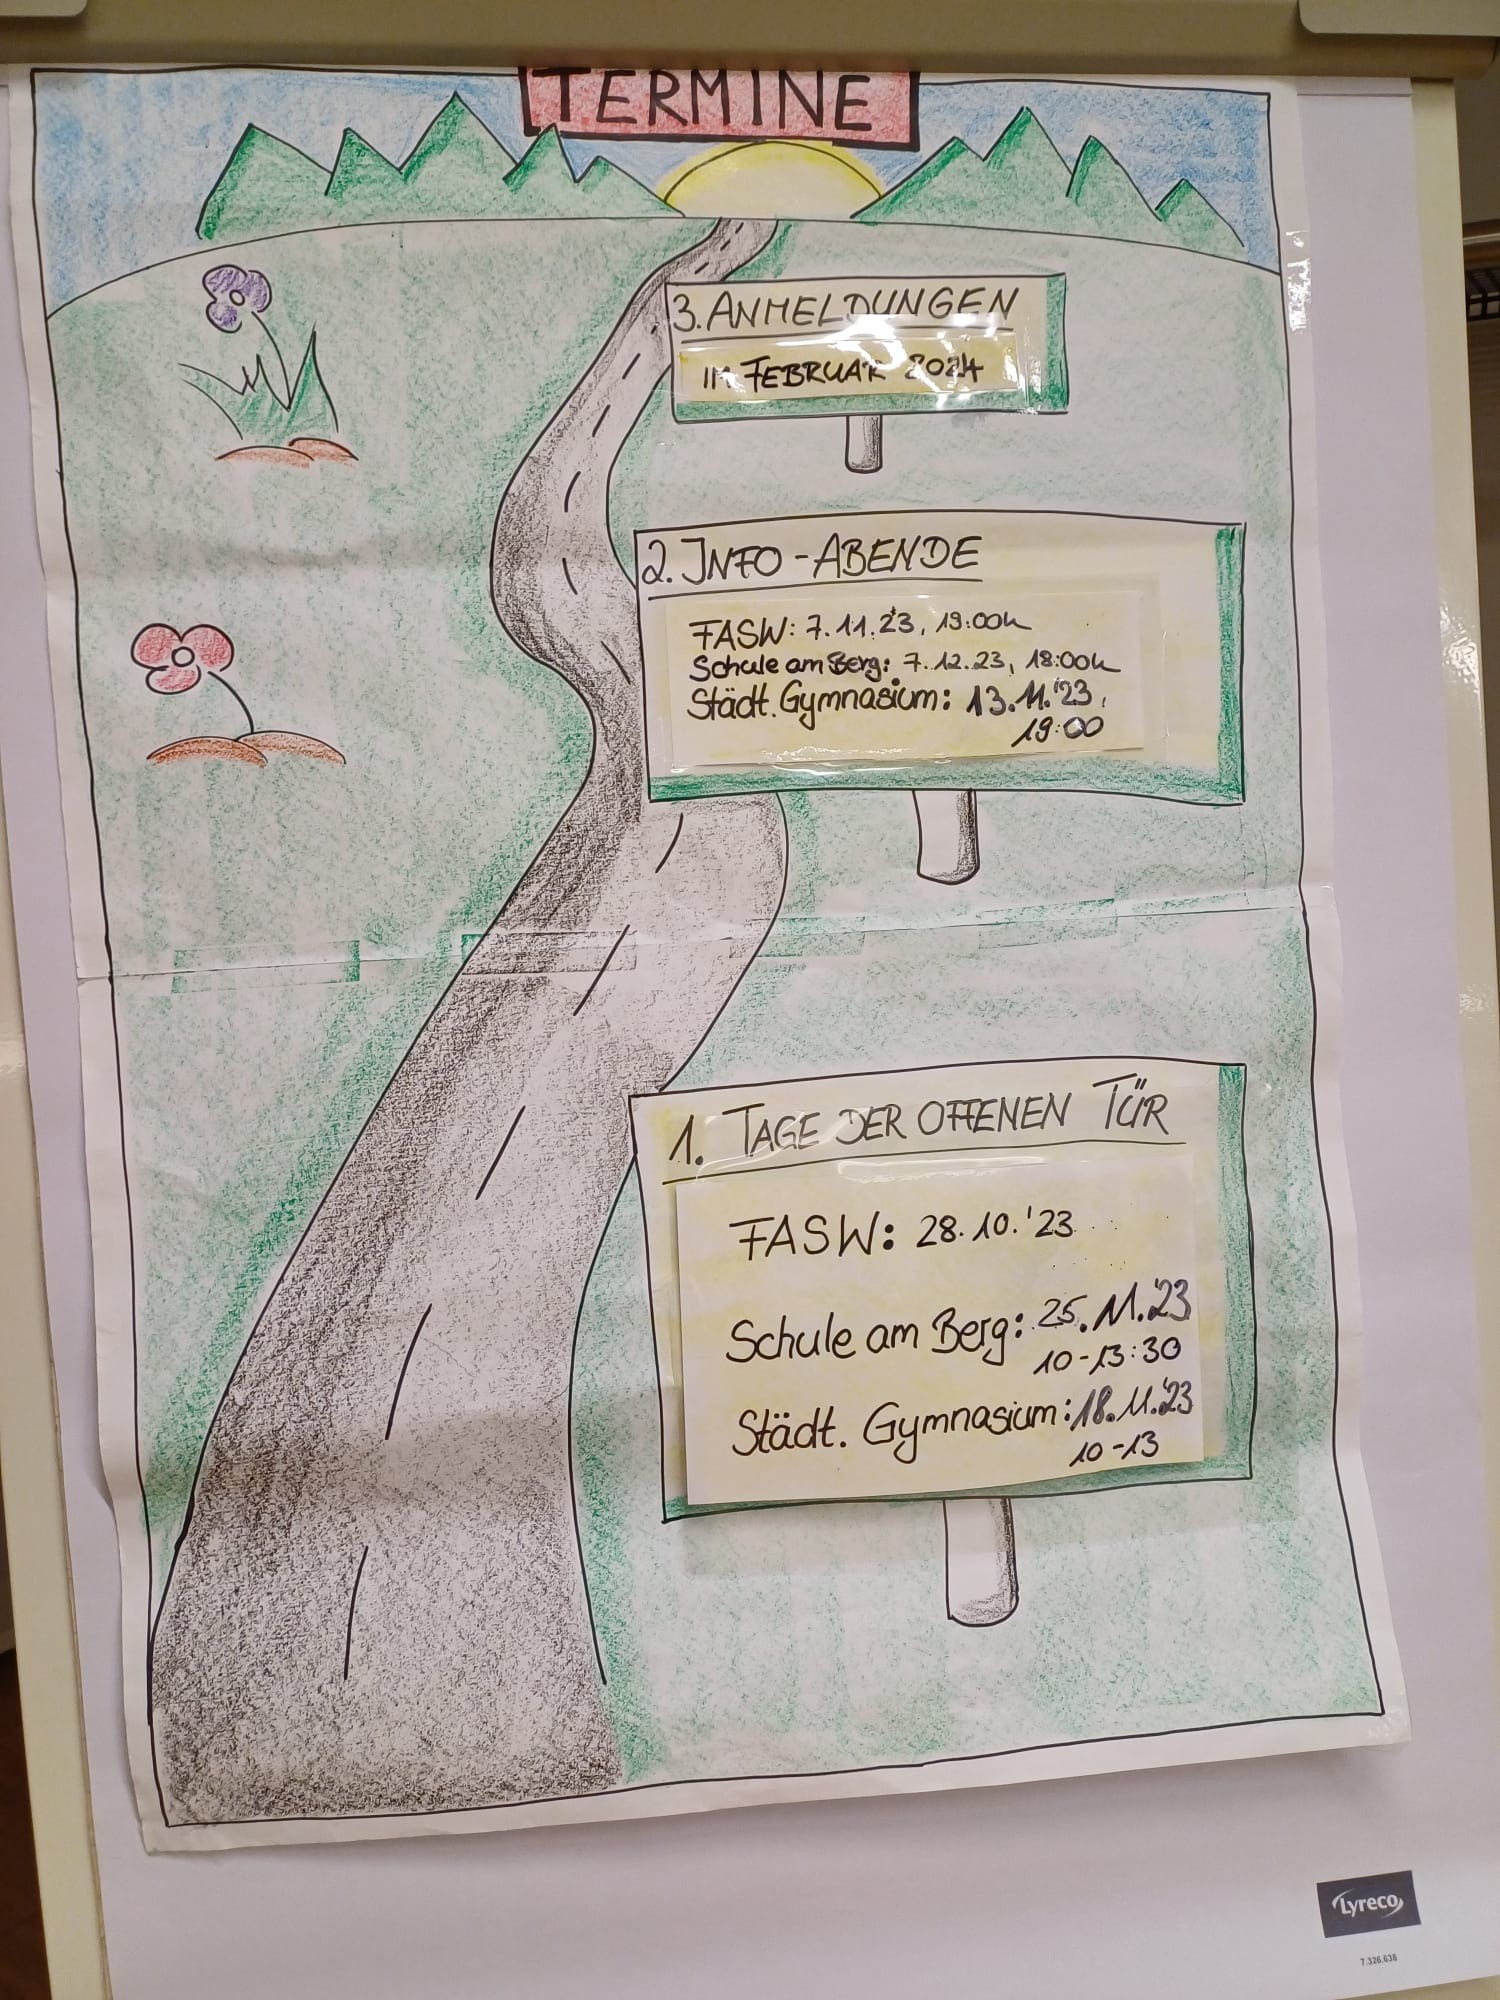 TERMINE
3. ANMELDUNGEN
IM FEBRUAR 2024
2. INFO-ABENDE
FASW: 7.11.23, 19:00h
Schule am Berg: 7.12.23, 18:00h
Städt. Gymnasium: 13.11.'23,
19:00
1. TAGE DER OFFENEN TÜR
FASW: 28.10.'23
Schule am Berg: 25.11.'23
10-13:30
Städt. Gymnasium: 18.11.'23
10-13
Lyreco
7.326.638